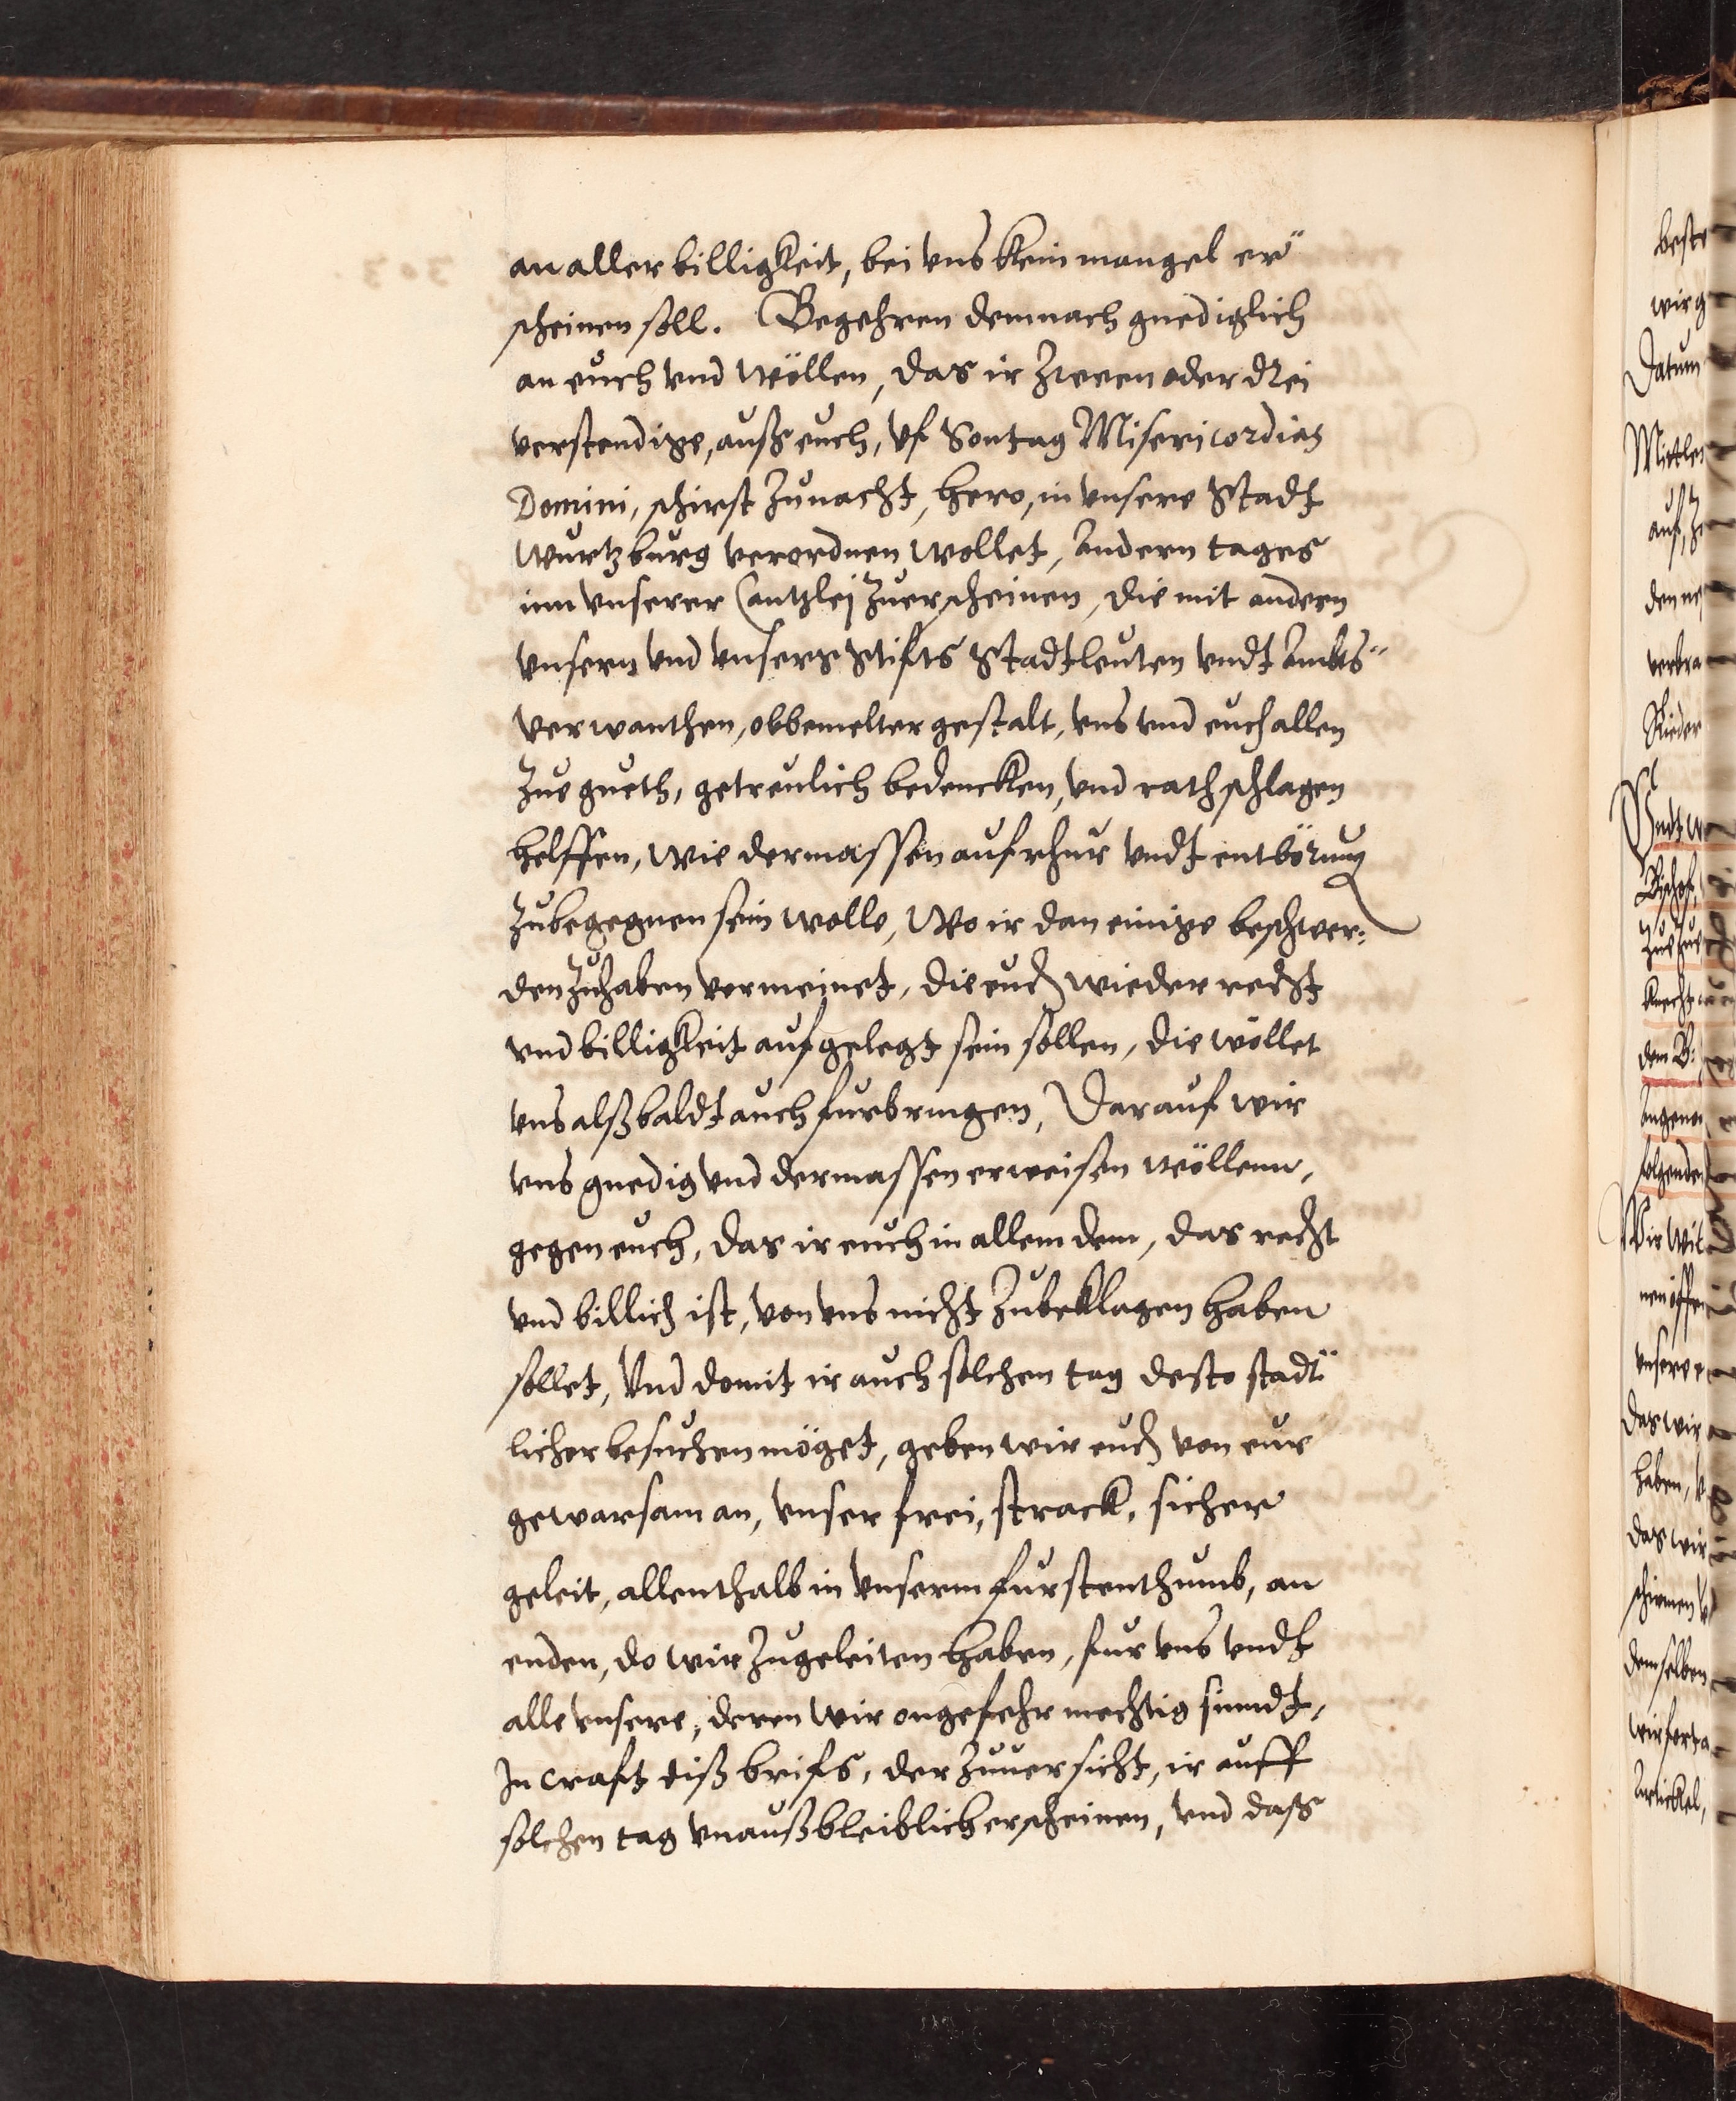 an aller billigkeit, bei vns kein mangel er"
scheinen soll. Begehren demnach gnediglich
an euch vnd wöllen, das ir zween oder drei
verstendige, auß euch, vf Sontag Misericordias
Domini, schirst zunacht, hero, in vnsere Stadt
Wurtzburg verordnen wollet, Andern tages
inn vnserer Cantzlej zuerscheinen, die mit andern
vnsern vnd vnsers Stifts Stadtleuten vndt Ambts"
verwanthen, obbemelter gestalt, vns vnd euch allen
zue gueth, getreulich bedencken, vnd rathschlagen
helffen, wie dermassen aufrhur vndt entbörung
zubegegnen sein wolle, Wo ir dan einige beschwer:
den zuhaben vermeinet, die euch wieder recht
vnd billigkeit aufgelegt sein sollen, die wöllet
vns alßbaldt auch furbringen, Darauf wir
vns gnedig vnd dermassen erweisen wöllenn,
gegen euch, das ir euch in allem dem, das recht
vnd billich ist, von vns nicht zubeklagen haben
sollet, Vnd domit ir auch solchen tag desto stadt"
licher besuchen möget, geben wir euch von eur
gewarsam an, vnser frei, strack, sicher
geleit, allenthalb in vnserm furstenthumb, an
enden, do wir zugeleiten haben, fur vns vndt
alle vnsere, deren wir ongefehr mechtig sinndt,
In craft diß brifs, der zuuersicht, ir auff
solchen tag vnaußbleiblich erscheinen, vnd daß
beste
wir g
Datum
Mitler
auf, ze
verbra
Rieder
Vndt w
Bischof,
zue zue
knecht
dem B:
Angeno
folgenden
Wir Wil
vnsere
Das wir
haben, v
das wir
schirmen v
demselben
wir forta
Artickel,